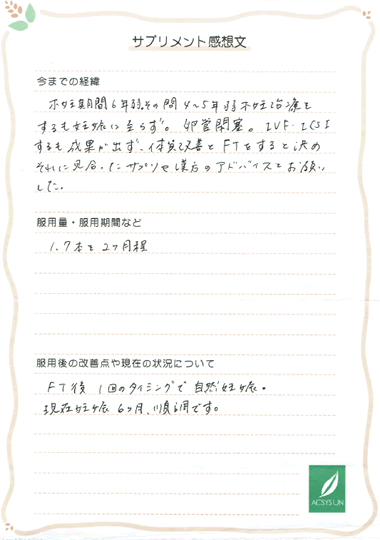 サプリメント感想文
今までの経緯
不妊期間6年弱。その間4〜5年弱不妊治療を
するも妊娠に至らず。卵管閉塞。IVF・ICSI
するも成果が出ず、体質改善とFTをすると決め
それに見合ったサプリや漢方のアドバイスをお願い
した。
服用量・服用期間など
1.7本を2ヶ月程
服用後の改善点や現在の状況について
FT後1回のタイミングで自然妊娠。
現在妊娠6ヶ月、順調です。
ACSYSUN